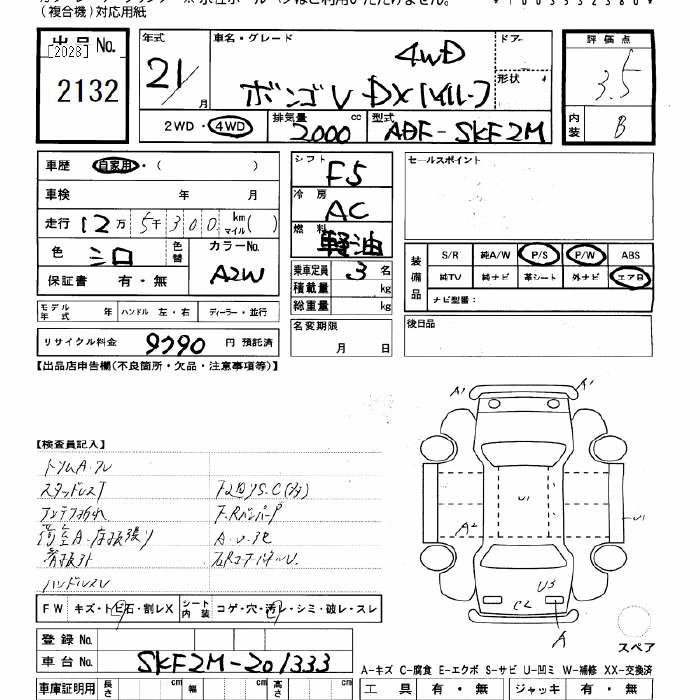 (複合機)対応用紙
出品No.
[2028]
2132
年式
21/
月
車名・グレード
4WD
ボンゴV DX
ドア
形状
2WD・4WD
排気量
2000
cc
型式
ABF-SKF2M
評価点
3.5
内装
B
車歴 自家用・( )
車検 年 月
走行 12万5千300 km マイル( )
色 シロ
色替
カラーNo.
A2W
保証書 有・無
モデル年式 年 ハンドル 左・右 ディーラー・並行
リサイクル料金 9790 円 預託済
シフト
F5
冷房
AC
燃料
軽油
乗車定員 3 名
積載量 kg
総重量 kg
名変期限
月 日
セールスポイント
装備品
S/R 純A/W P/S P/W ABS
純TV 純ナビ 革シート 外ナビ エアB
ナビ型番:
後日品
【出品店申告欄(不良箇所・欠品・注意事項等)】
【検査員記入】
トリムA・ワレ
スタッドレスT
アンテナ折れ
荷室A・床板張り
ハンドルスレ
F.RバンパーP
A・U・3ヒ
FW キズ・トビ石・割レX シート内装 コゲ・穴・汚レ・シミ・破レ・スレ
登録 No.
車台 No. SKF2M-201333
車庫証明用 長さ cm 幅 cm 高さ cm
A' A'
U1
U1
A2
U3
C2
A
スペア
A-キズ C-腐食 E-エクボ S-サビ U-凹ミ W-補修 XX-交換済
工具 有・無 ジャッキ 有・無